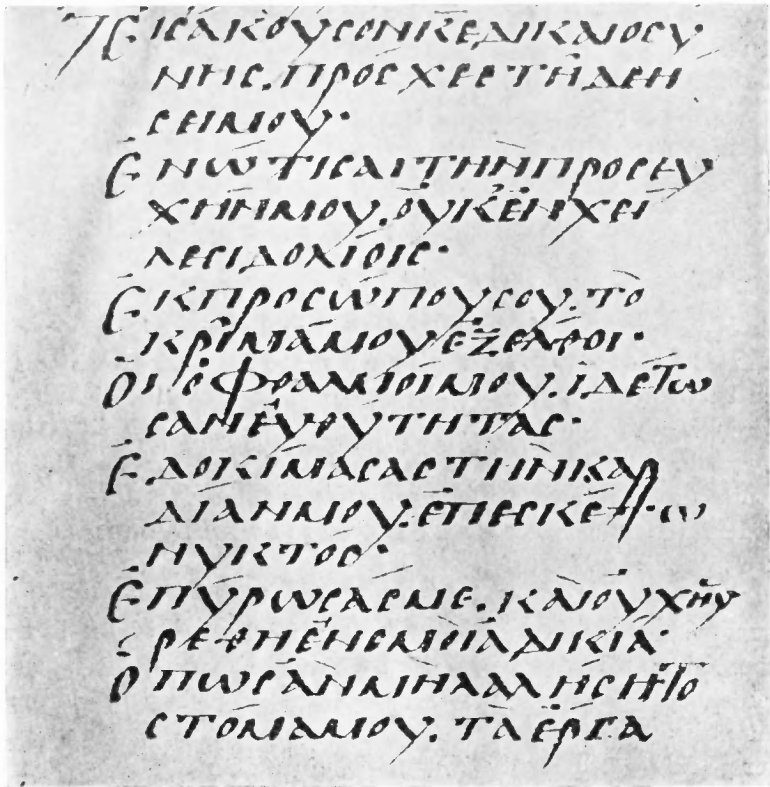 ΕΙϹΑΚΟΥϹΟΝΚΕΔΙΚΑΙΟϹΥ
ΝΗϹ. ΠΡΟϹΧΕϹΤΗΔΕΗ
ϹΕΙΜΟΥ·
ΕΝΩΤΙϹΑΙΤΗΝΠΡΟϹΕΥ
ΧΗΝΜΟΥ. ΟΥΚΕΝΧΕΙ
ΛΕϹΙΔΟΛΙΟΙϹ·
ΕΚΠΡΟϹΩΠΟΥϹΟΥ. ΤΟ
ΚΡΙΜΑΜΟΥΕΞΕΛΘΟΙ·
ΟΙΟΦΘΑΛΜΟΙΜΟΥ. ΙΔΕΤΩ
ϹΑΝΕΥΘΥΤΗΤΑϹ·
ΕΔΟΚΙΜΑϹΑϹΤΗΝΚΑΡ
ΔΙΑΝΜΟΥ. ΕΠΕϹΚΕΨΩ
ΝΥΚΤΟϹ·
ΕΠΥΡΩϹΑϹΜΕ. ΚΑΙΟΥΧΗΥ
ΡΕΘΗΕΝΕΜΟΙΑΔΙΚΙΑ·
ΟΠΩϹΑΝΜΗΛΑΛΗϹΗΤΟ
ϹΤΟΜΑΜΟΥ. ΤΑΕΡΓΑ